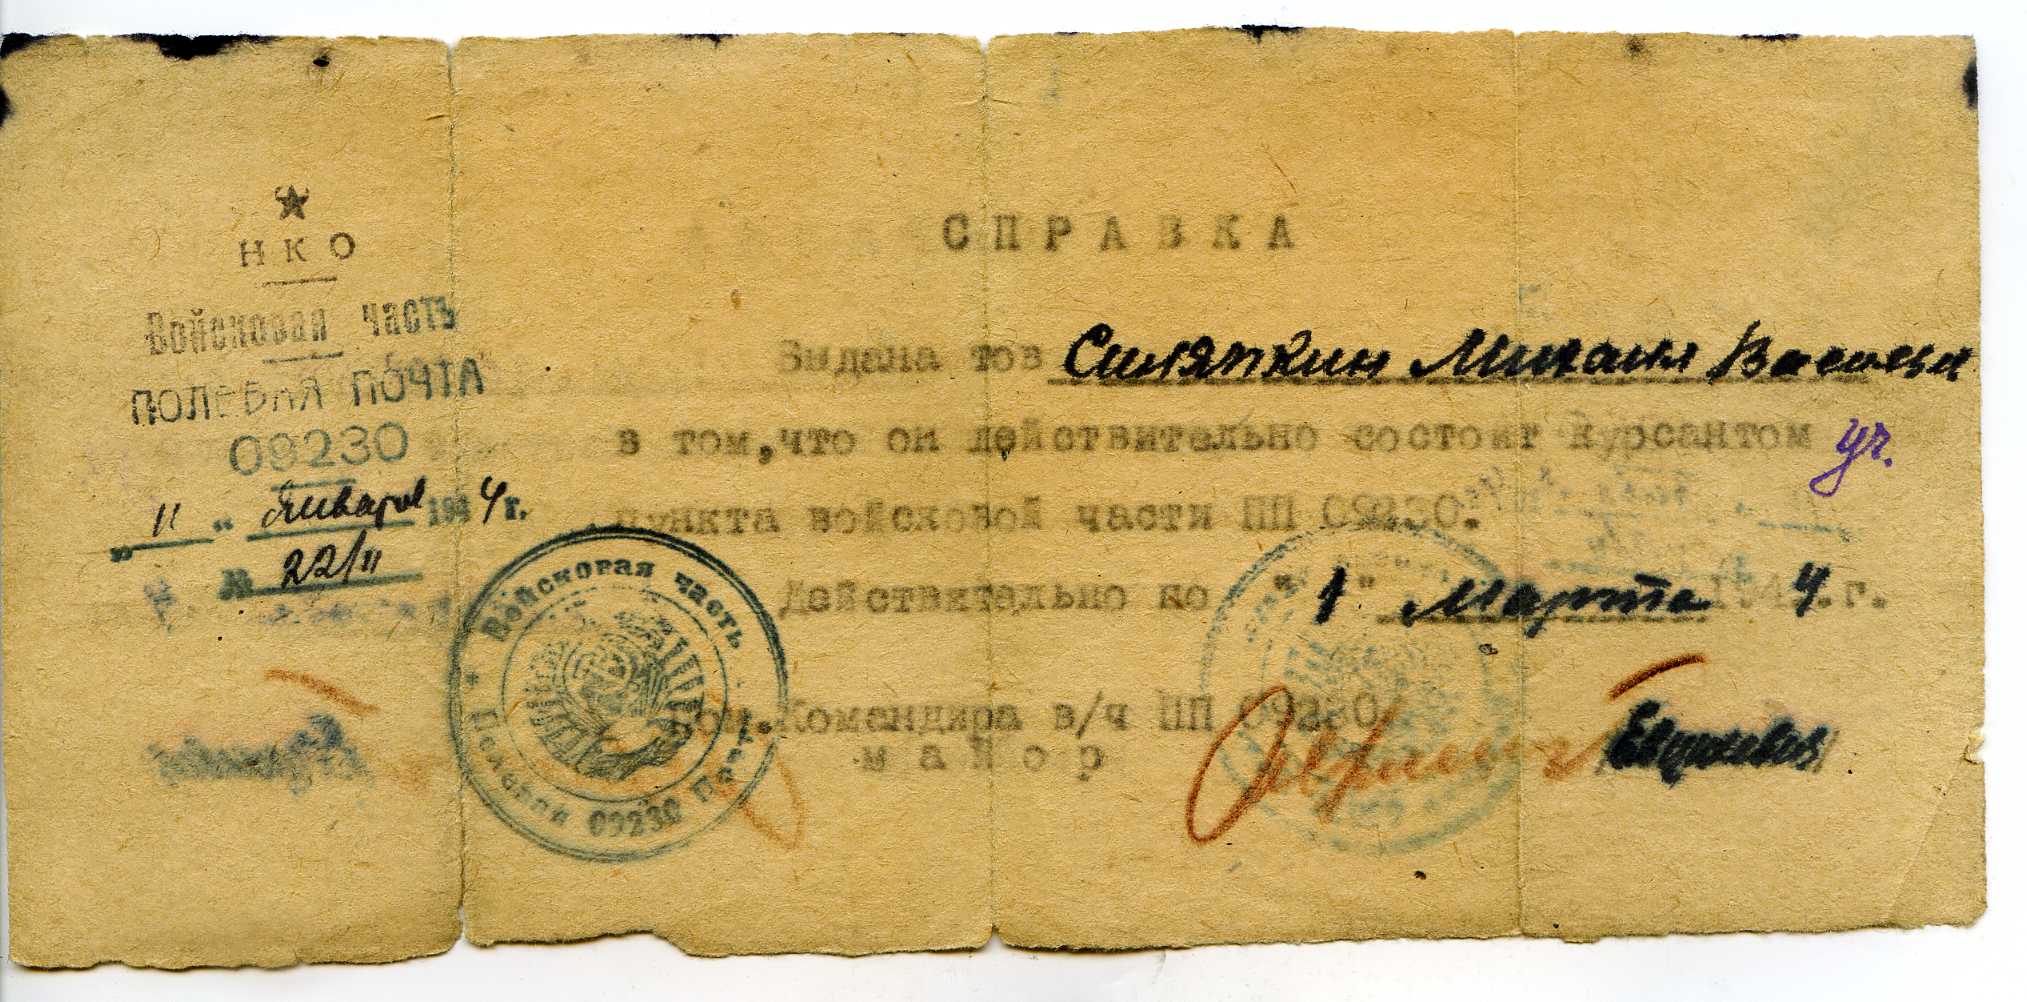 НКО
Войсковая часть
ПОЛЕВАЯ ПОЧТА
09230
„ 11 “ Января 1944г.
№ 22/11
СПРАВКА
Выдана тов Силяпкин Михаил Васильев
в том,что он действительно состоит курсантом уч.
пункта войсковой части ПП 09230.
Действительно по "1" Марта 1944.г.
Командира в/ч ПП 09230
майор
Войсковая часть
Полевая Почта 09230